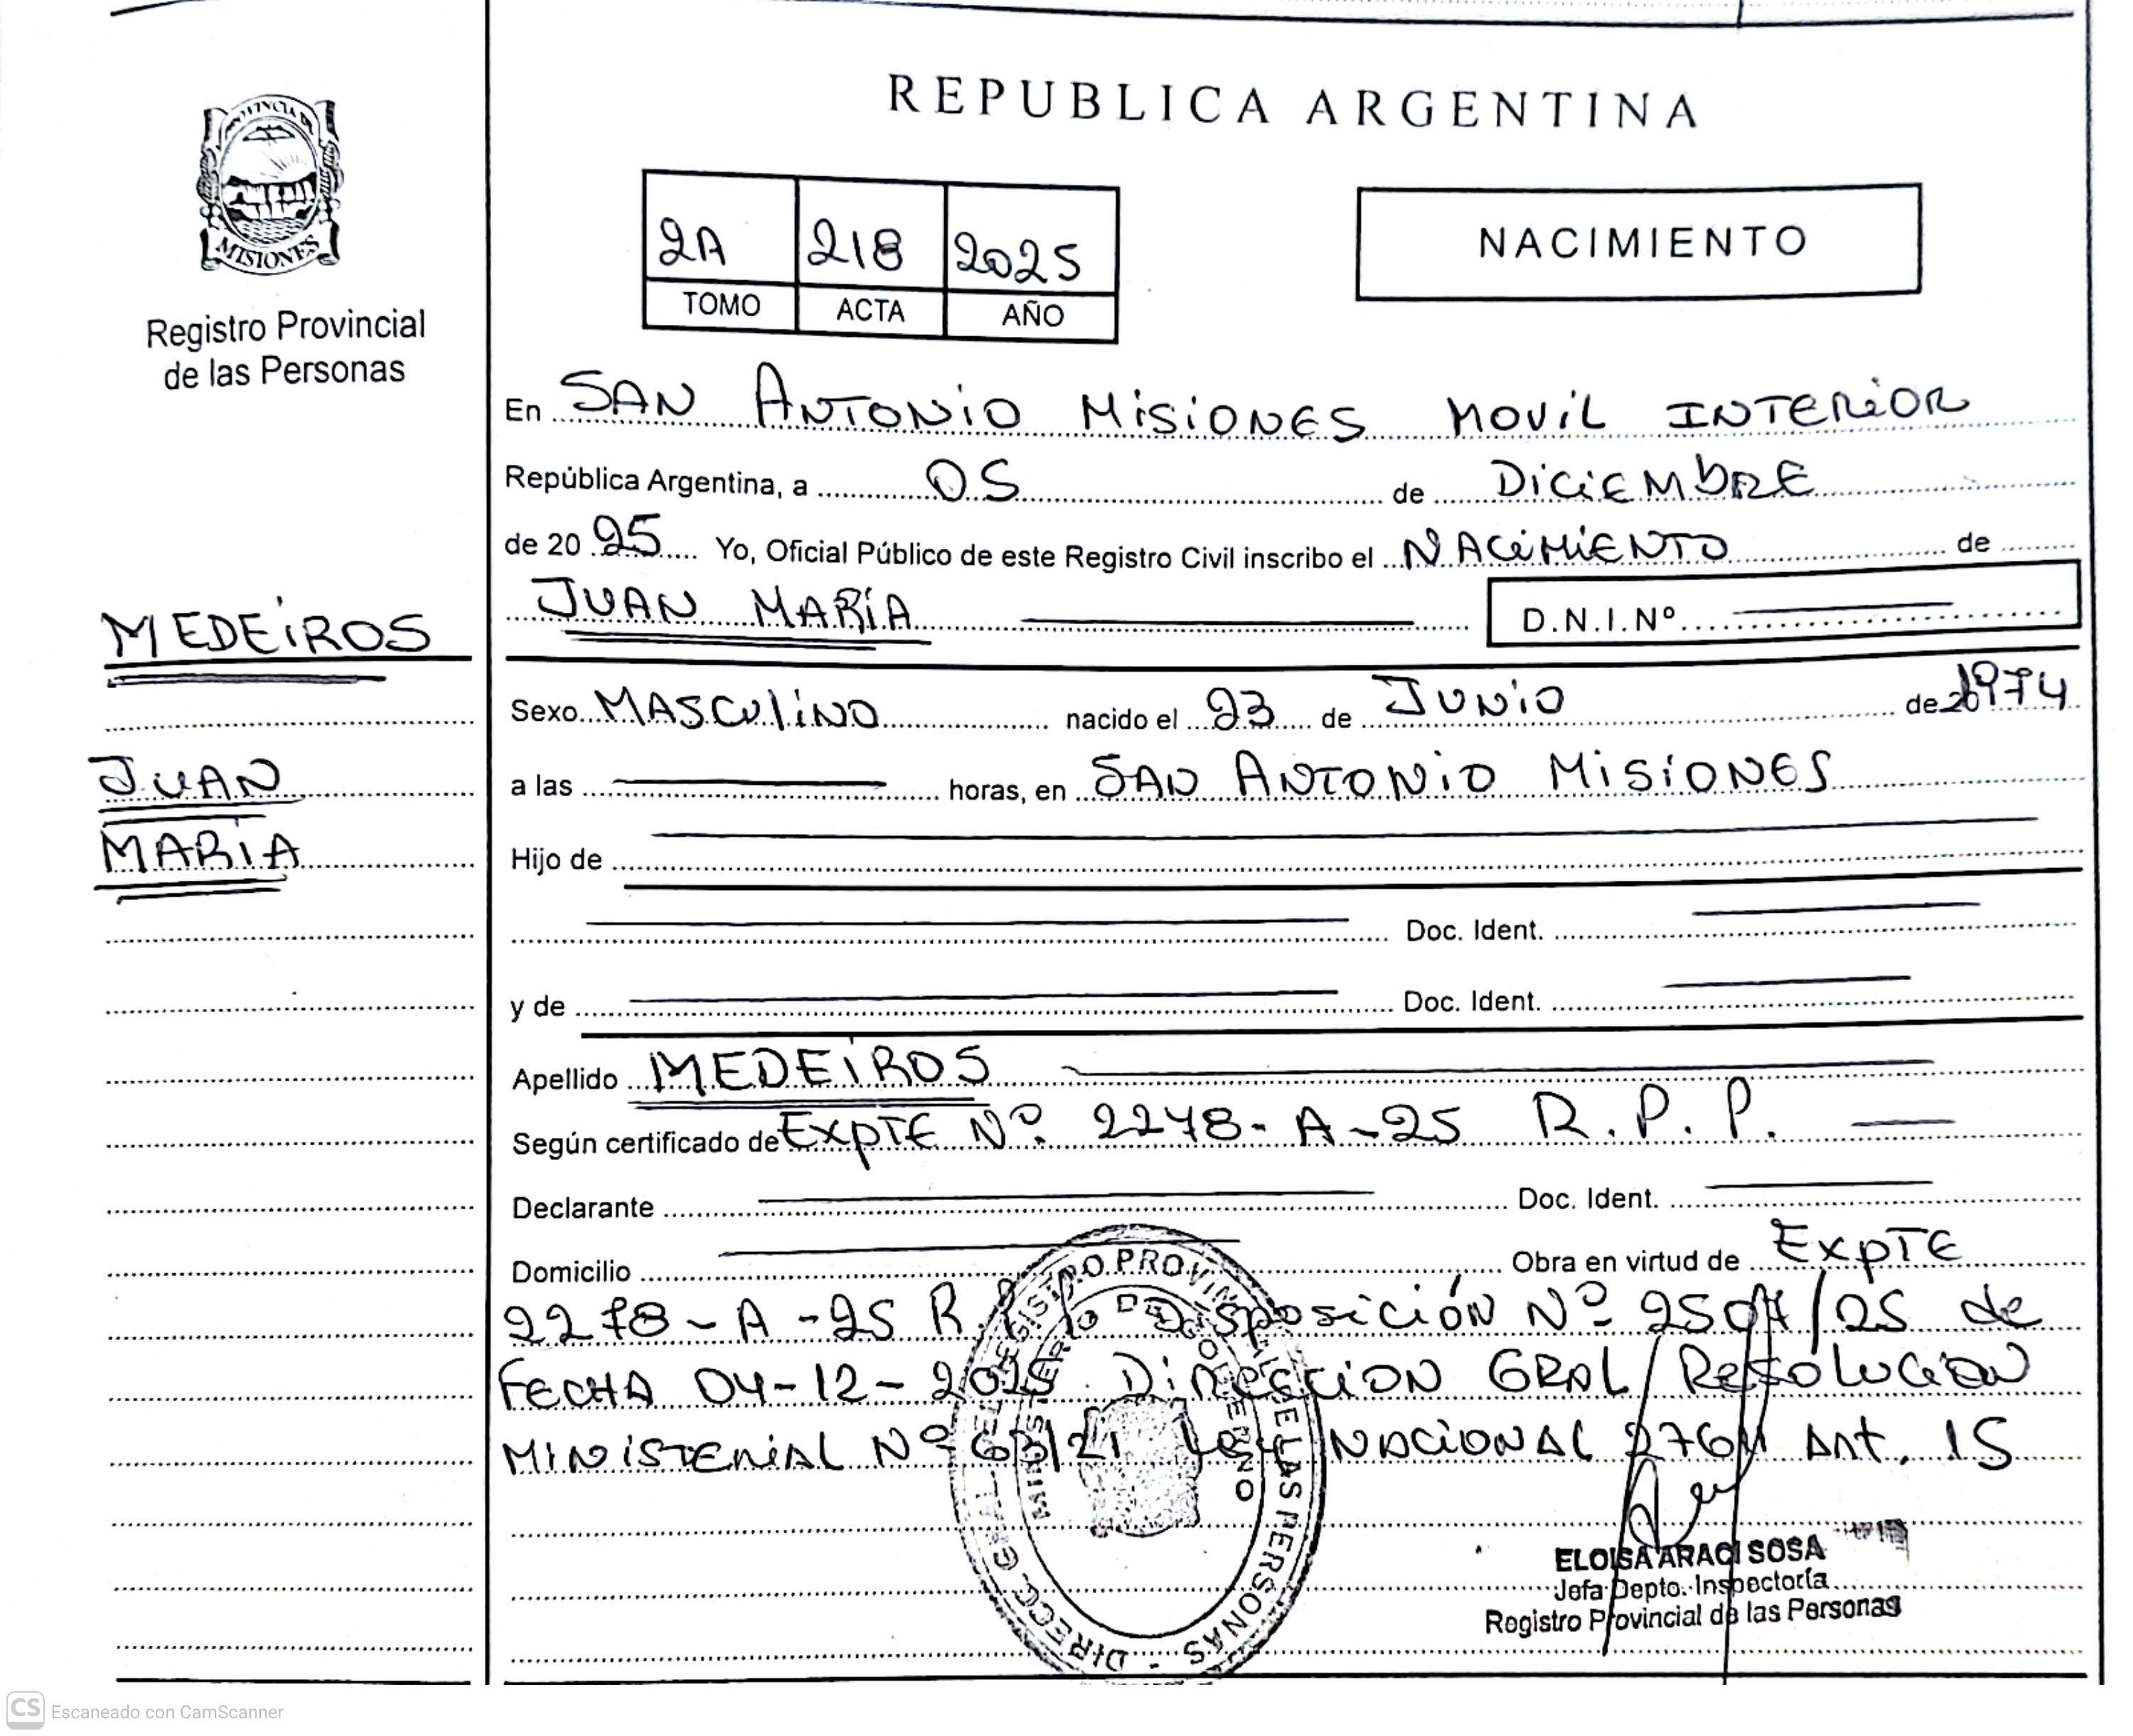 REPUBLICA ARGENTINA
PROVINCIA DE
MISIONES
Registro Provincial
de las Personas
2A 218 2025
TOMO ACTA AÑO
NACIMIENTO
En SAN ANTONIO MISIONES MOVIL INTERIOR
República Argentina, a 05 de DICIEMBRE
de 20 25 Yo, Oficial Público de este Registro Civil inscribo el NACIMIENTO de
JUAN MARÍA D.N.I.Nº
MEDEIROS
JUAN
MARIA
Sexo MASCULINO nacido el 23 de JUNIO de 1974
a las horas, en SAN ANTONIO MISIONES
Hijo de
Doc. Ident.
y de Doc. Ident.
Apellido MEDEIROS
Según certificado de EXPTE Nº. 2278-A-25 R.P.P.
Declarante Doc. Ident.
Domicilio Obra en virtud de EXPTE
2278-A-25 R. Disposición Nº 2504/25 de
FECHA 04-12-2025 DIRECCION GRAL Resolución
MINISTERIAL Nº 63/21 Ley NACIONAL Art. 15
DIRECC. GRAL. DEL REGISTRO PROVINCIAL DE LAS PERSONAS
MINISTERIO DE GOBIERNO
ELOISA ARACI SOSA
Jefa Depto. Inspectoría
Registro Provincial de las Personas
CS Escaneado con CamScanner